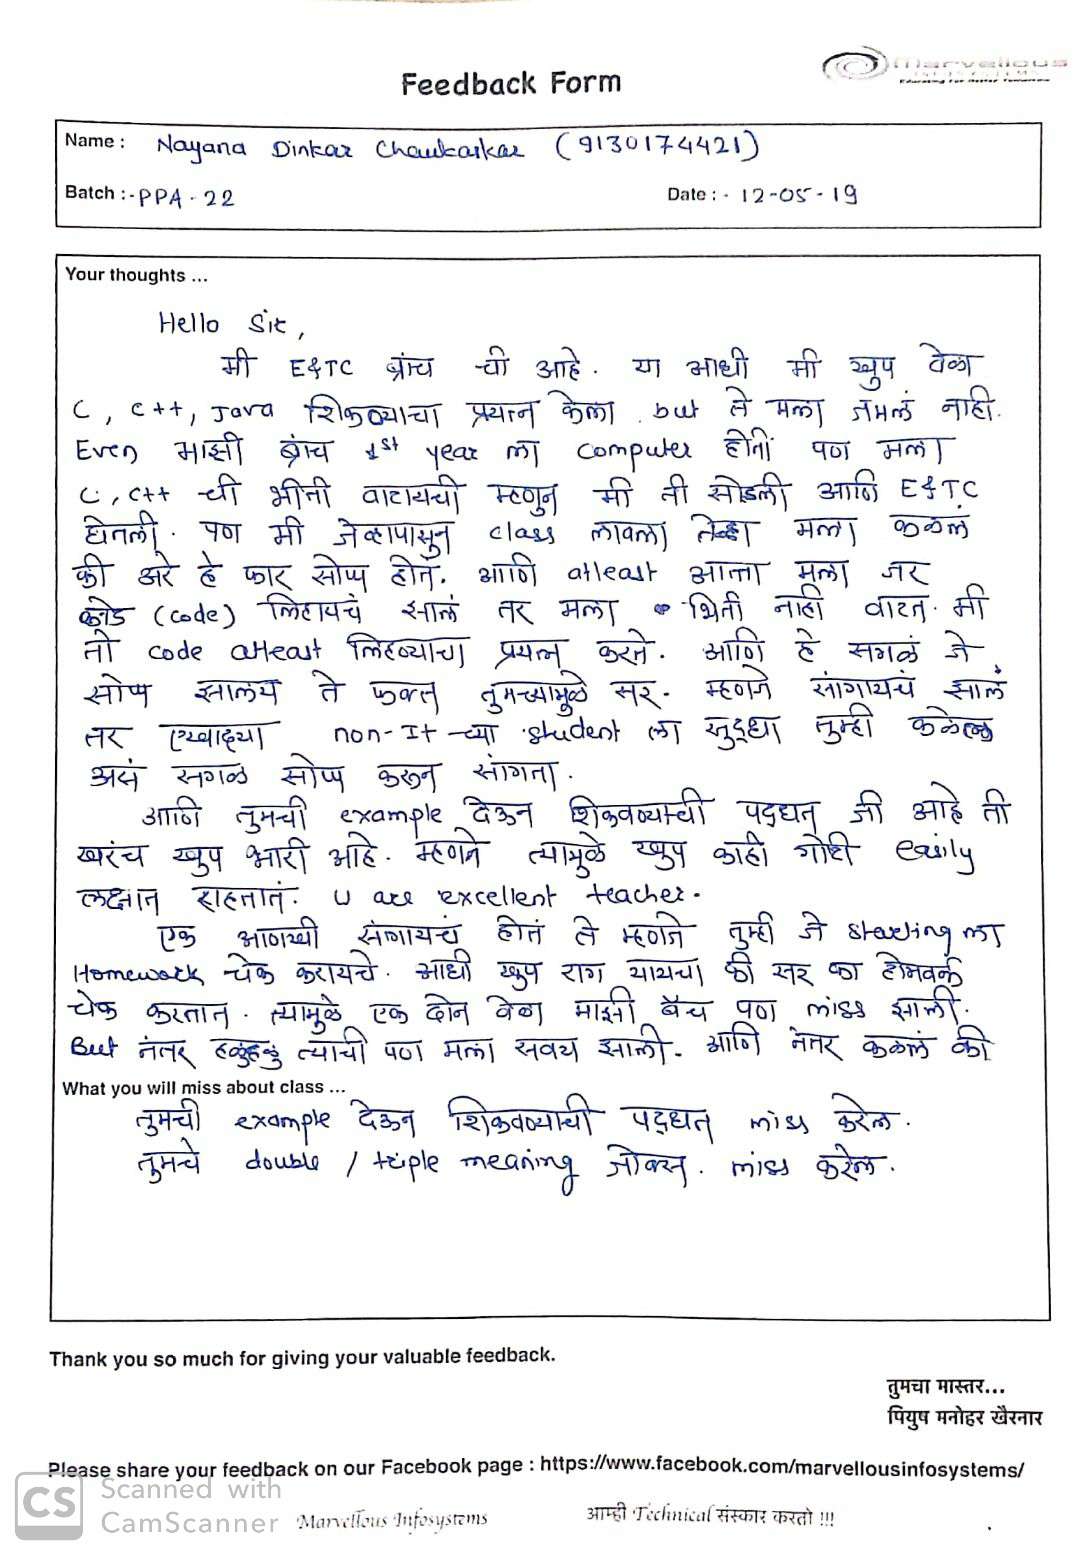 Marvellous
INFOSYSTEMS
Educating for Better Tomorrow
Feedback Form
Name : Nayana Dinkar Chaukaskar (9130174421)
Batch :- PPA - 22 Date : - 12-05-19
Your thoughts ...
Hello Sir,
मी E&TC ब्रांच ची आहे. या आधी मी खुप वेळा
C, C++, Java शिकण्याचा प्रयत्न केला but ते मला जमलं नाही.
Even माझी ब्रांच 1st year ला computer होती पण मला
C, C++ ची भीती वाटायची म्हणुन मी ती सोडली आणि E&TC
घेतली. पण मी जेव्हापासुन class लावला तेव्हा मला कळलं
की अरे हे फार सोप्प होतं. आणि atleast आत्ता मला जर
कोड (code) लिहायचं झालं तर मला भिती नाही वाटत. मी
तो code atleast लिहण्याचा प्रयत्न करते. आणि हे सगळं जे
सोप्प झालंय ते फक्त तुमच्यामुळे सर. म्हणजे सांगायचं झालं
तर एखाद्या non-It च्या student ला सुद्धा तुम्ही कळेल
असं सगळ सोप्प करून सांगता.
आणि तुमची example देऊन शिकवण्याची पद्धत जी आहे ती
खरंच खुप भारी आहे. म्हणजे त्यामुळे खुप काही गोष्टी easily
लक्षात राहतात. U are excellent teacher.
एक आणखी सांगायचं होतं ते म्हणजे तुम्ही जे starting ला
Homework चेक करायचे. आधी खुप राग यायचा की सर का होमवर्क
चेक करतात. त्यामुळे एक दोन वेळा माझी बॅच पण miss झाली.
But नंतर हळुहळु त्याची पण मला सवय झाली. आणि नंतर कळलं की
What you will miss about class ...
तुमची example देऊन शिकवण्याची पद्धत miss करेल.
तुमचे double / triple meaning जोक्स. miss करेल.
Thank you so much for giving your valuable feedback.
तुमचा मास्तर...
पियुष मनोहर खैरनार
Please share your feedback on our Facebook page : https://www.facebook.com/marvellousinfosystems/
CS Scanned with
CamScanner
Marvellous Infosystems आम्ही Technical संस्कार करतो !!!